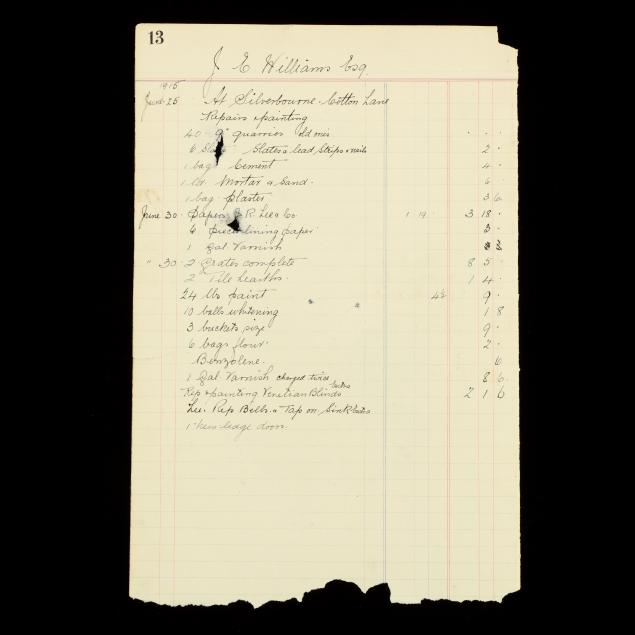 13
J E Williams Esq.
1915
June 25 At Silverbourne. Cotton Lane
Repairs & painting
40 9" quarries
6 Slates & lead Strips & nails 2 .
1 bag Cement 4 .
1 ld. Mortar & Sand. 6 .
1 bag plaster 3 6
June 30. Paper R. Lee & Co 1 19 3 18 .
6 lining paper 3 .
1 gal Varnish 3
" 30. 2 Grates complete 8 5 .
2 Tile hearths. 1 4 .
24 lbs paint 4½ 9 .
10 balls whitening 1 8
3 buckets size 9 .
6 bags flour 2 .
Benzolene. 6
1 Gal. Varnish charged twice 8 6
Rep & painting Venetian Blinds 2 1 6
Lee. Rep Bells. & Tap on Sink
1 new ledge door.